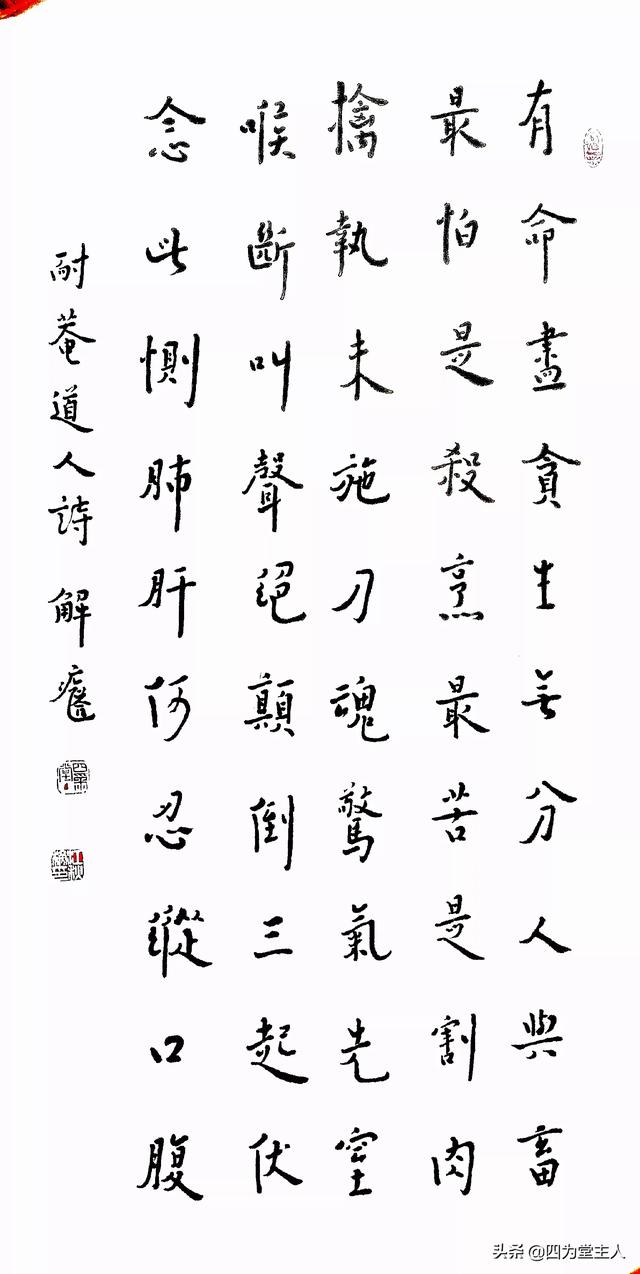 有命盡貪生無分人與畜
最怕是殺烹最苦是割肉
擒執未施刀魂驚氣先窒
喉斷叫聲絕顛倒三起伏
念此惻肺肝何忍縱口腹
耐菴道人詩 解
头条 @四为堂主人